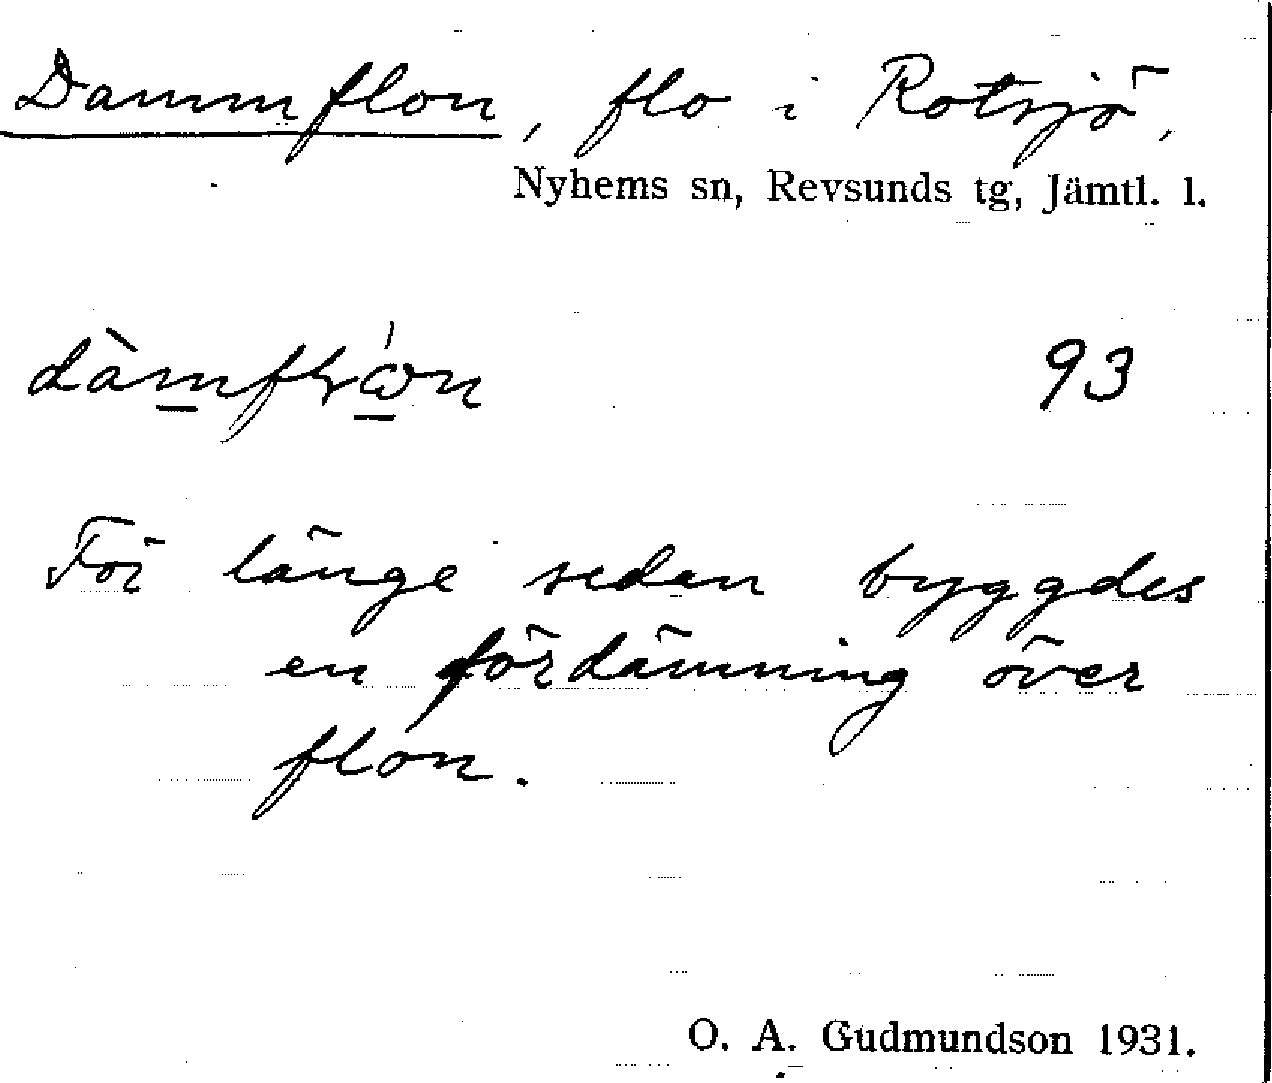 Dammflon, flo i Rotsjö,
Nyhems sn, Revsunds tg, Jämtl. l.
93
För länge seden byggdes
en fördämning över
flon.
O. A. Gudmundson 1931.